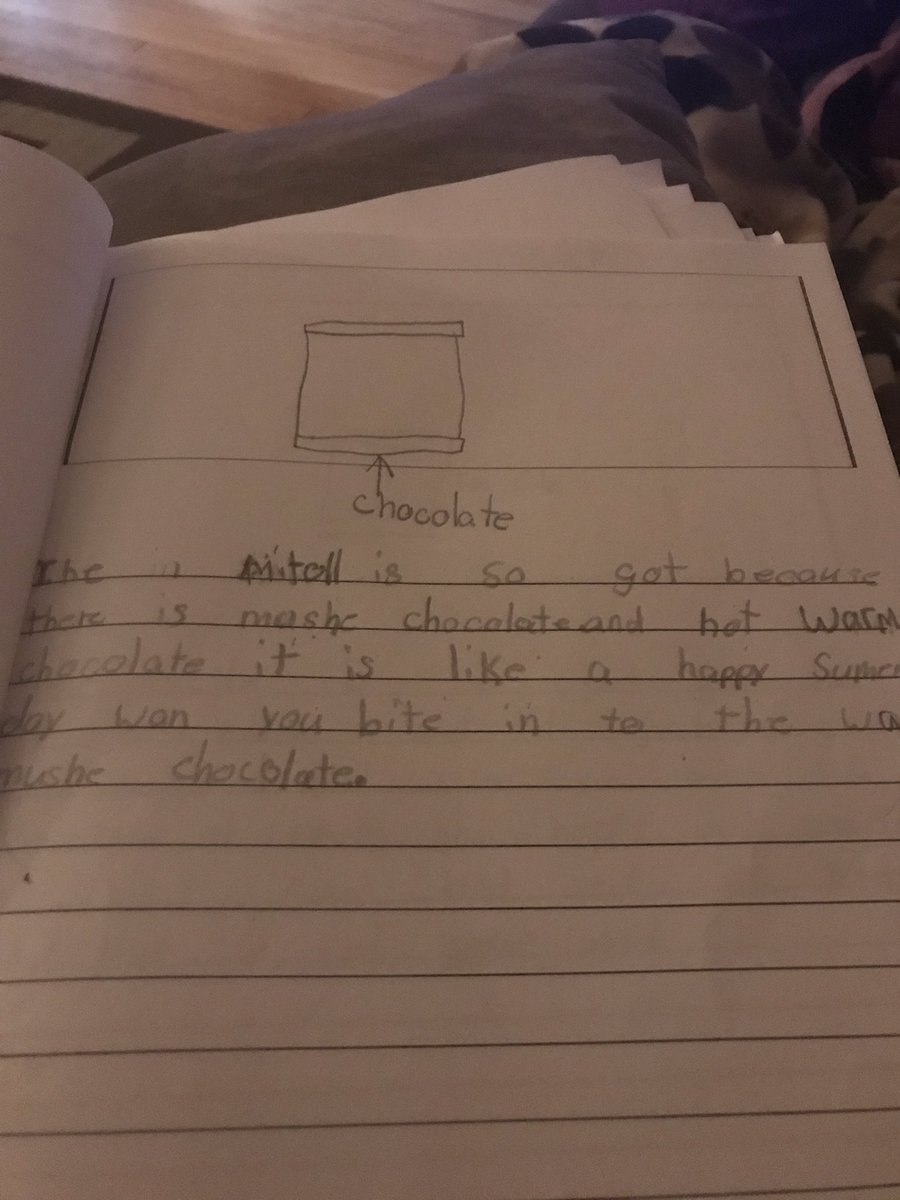 chocolate
The mitoll is so got because
there is mashe chocolate and hot warm
chocolate it is like a happy Sumer
day wan you bite in to the wa
mushe chocolate.